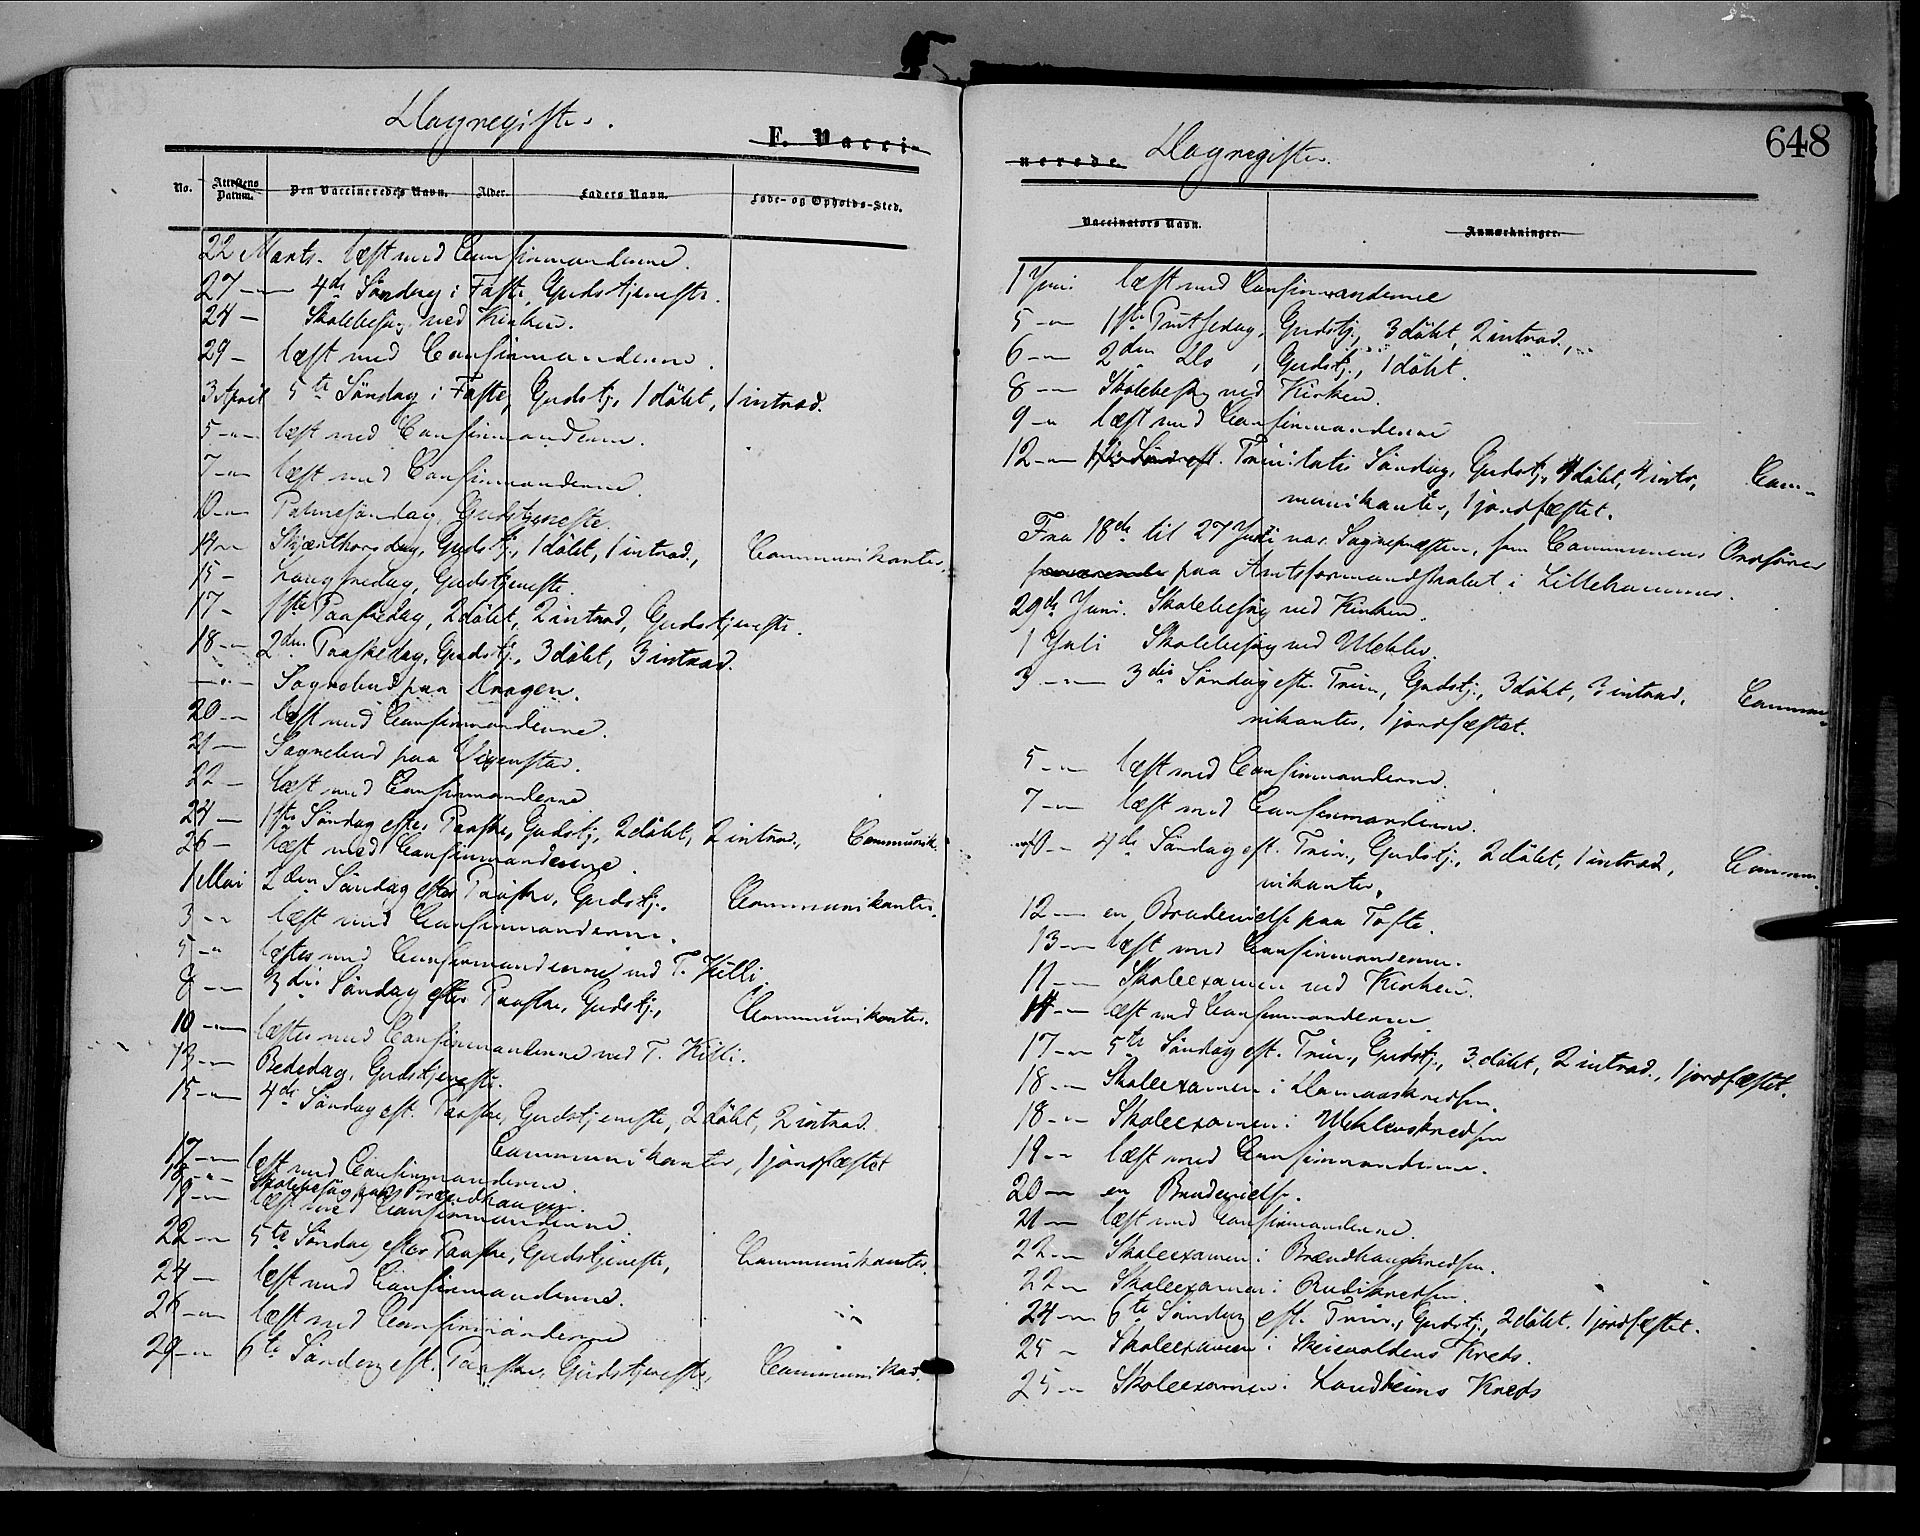 Dagregister.
F. Vacci-
No.
Attestens Datum.
Den Vaccineredes Navn.
Alder.
Faders Navn.
Føde- og Opholds-Sted.
22 Marts. læst med Confirmanderne.
27 — 4de Søndag i Faste, Gudstjeneste.
24 — Skolebesøg ved Kirken.
29 — læst med Confirmanderne.
3 April 5te Søndag i Faste, Gudstj., 1 døbt, 1 introd.
5 — læst med Confirmanderne.
7 — læst med Confirmanderne.
10 — Palmesøndag Gudstjeneste.
14 — Skjærthorsdag, Gudstj., 1 døbt, 1 introd., Communikanter.
15 — Langfredag, Gudstjeneste.
17 — 1ste Paaskedag, 2 døbt, 2 introd, Gudstjeneste.
18 — 2den Paaskedag, Gudstj., 3 døbt, 3 introd.
—"— Sognebud paa Kragen.
20 — læst med Confirmanderne.
21 — Sognebud paa Vigenstad.
22 — læst med Confirmanderne
24 — 1ste Søndag efter Paaske, Gudstj, 2 døbt, 2 introd., Communik.
26 — læst med Confirmanderne.
1 Mai 2den Søndag efter Paaske, Gudstj., Communikanter.
3 — læst med Confirmanderne.
5 — læstes med Confirmanderne ved T. Killi
8 — 3die Søndag efter Paaske, Gudstj., Communikanter.
10 — læstes med Confirmanderne ved T. Killi.
13 — Bededag, Gudstjeneste.
15 — 4de Søndag eft. Paaske, Gudstjeneste, 2 døbt, 2 introd.
Communikanter, 1 jordfæstet
17 — læst med Confirmanderne.
18 — Skolebesøg paa Brændhaugen.
19 — læst med Confirmanderne
22 — 5te Søndag efter Paaske, Gudstjeneste, Communikanter.
24 — læst med Confirmanderne.
26 — læst med Confirmanderne
29 — 6te Søndag eft. Paaske, Gudstjeneste, Communikad.
648
nerede.
Dagregister.
Vaccinators Navn.
Anmærkninger.
1 Juni læst med Confirmanderne
5 — 1ste Pintsedag, Gudstj, 3 døbt, 2 introd.,
6 — 2den Do, Gudstj., 1 døbt.
8 — Skolebesøg ved Kirken.
9 — læst med Confirmanderne
12 — Trinitatis Søndag, Gudstj., 4 døbt, 4 intr, Com-
munikanter, 1 jordfæstet.
Fra 18de til 27 Juli var Sognepræsten, som Communens Ordfører
paa Amtsformandskabet i Lillehammer.
29de Juni. Skolebesøg ved Kirken.
1 Juli Skolebesøg ved Mehler.
3 — 3die Søndag eft. Trin, Gudstj., 3 døbt, 3 introd, Commu-
nikanter, 1 jordfæstet.
5 — læst med Confirmanderne.
7 — læst med Confirmanderne.
10 — 4de Søndag eft. Trin., Gudstj., 2 døbt, 1 introd, Commu-
nikanter.
12 — en Brudevielse paa Tofte.
13 — læst med Confirmanderne.
11 — Skoleexamen ved Kirken.
14 — læst med Confirmanderne
17 — 5te Søndag eft. Trin., Gudstj., 3 døbt, 2 introd., 1 jordfæstet.
18 — Skoleexamen i
18 — Skoleexamen i Mehlenskredsen
19 — læst med Confirmanderne.
20 — en Brudevielse.
21 — læst med Confirmanderne.
22 — Skoleexamen i Brændhaugkredsen.
22 — Skoleexamen i Rudikredsen.
24 — 6te Søndag eft. Trin., Gudstj., 2 døbt. 1 jordfæstet.
25 — Skoleexamen i Skeievoldens Kreds.
25 — Skoleexamen i Landheims Kreds